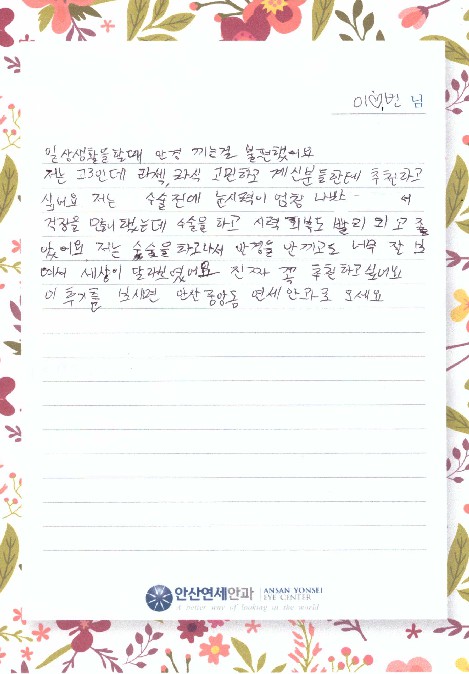 이♡빈 님
일상생활을할때 안경 끼는걸 불편했어요
저는 고3인데 라섹, 라식 고민하고 계신분들한테 추천하고
싶어요 저는 수술전에 눈시력이 엄청 나빠 서
걱정을 많이 했는데 수술을 하고 시력 회복도 빨리 되고 좋
았어요 저는 수술을 하고나서 안경을 안끼고도 너무 잘 보
여서 세상이 달라보였어요 진짜 꼭 추천하고싶어요
이 후기를 보시면 안산 중앙동 연세안과로 오세요
안산연세안과 ANSAN YONSEI
EYE CENTER
A better way of looking in the world